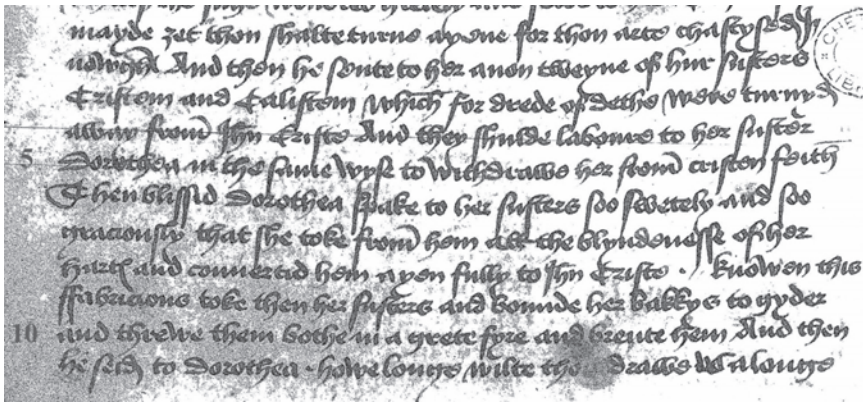 mayde zet thou shalte turne ayene for thou arte chastysed
nowght And then he sente to her anon tweyne of hur susters
Cristem and Calistem which for drede of dethe were turnyd
away from Ihu Criste And they shulde laboure to her suster
5 Dorothea in the same wyse to withdrawe her from cristen feith
Then blissid Dorothea spake to her susters soo swetely and soo
graciously that she toke from hem all the blyndenesse of her
hartes and convertid hem ayen fully to Ihu Criste . knowen this
ffabricious toke then her susters and bounde her bakkys to gyder
10 and threwe them bothe in a grete fyre and brente hem And then
he seid to Dorothea . howe longe wilte thou drawe us a longe